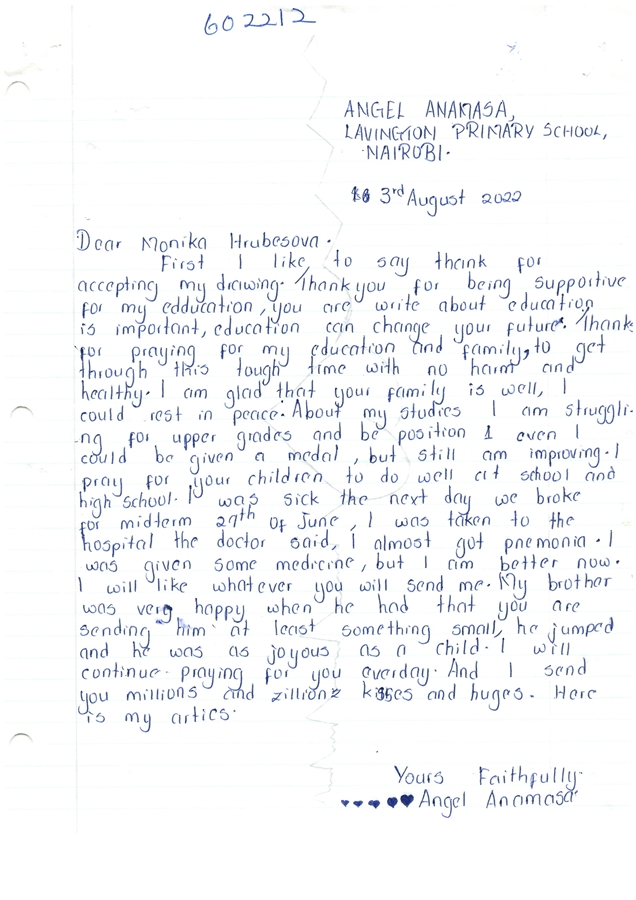 602212
ANGEL ANAMASA,
LAVINGTON PRIMARY SCHOOL,
NAIROBI.
3rd August 2022
Dear Monika Hrubesova.
First I like, to say thank for
accepting my drawing. Thank you for being supportive
for my edducation, you are write about education
is important, education can change your future. Thank
for praying for my education and family, to get
through this tough time with no harm and
healthy. I am glad that your family is well, I
could rest in peace. About my studies I am struggli-
-ng for upper grades and be position 1 even I
could be given a medal, but still am improving. I
pray for your children to do well at school and
high school. I was sick the next day we broke
for midterm 29th Of June, I was taken to the
hospital the doctor said, I almost got pnemonia. I
was given some medicine, but I am better now.
I will like whatever you will send me. My brother
was very happy when he had that you are
sending him at least something small, he jumped
and he was as joyous as a child. I will
continue praying for you everday. And I send
you millions and zillionz kisses and huges. Here
is my artics.
Yours Faithfully.
Angel Anamasa